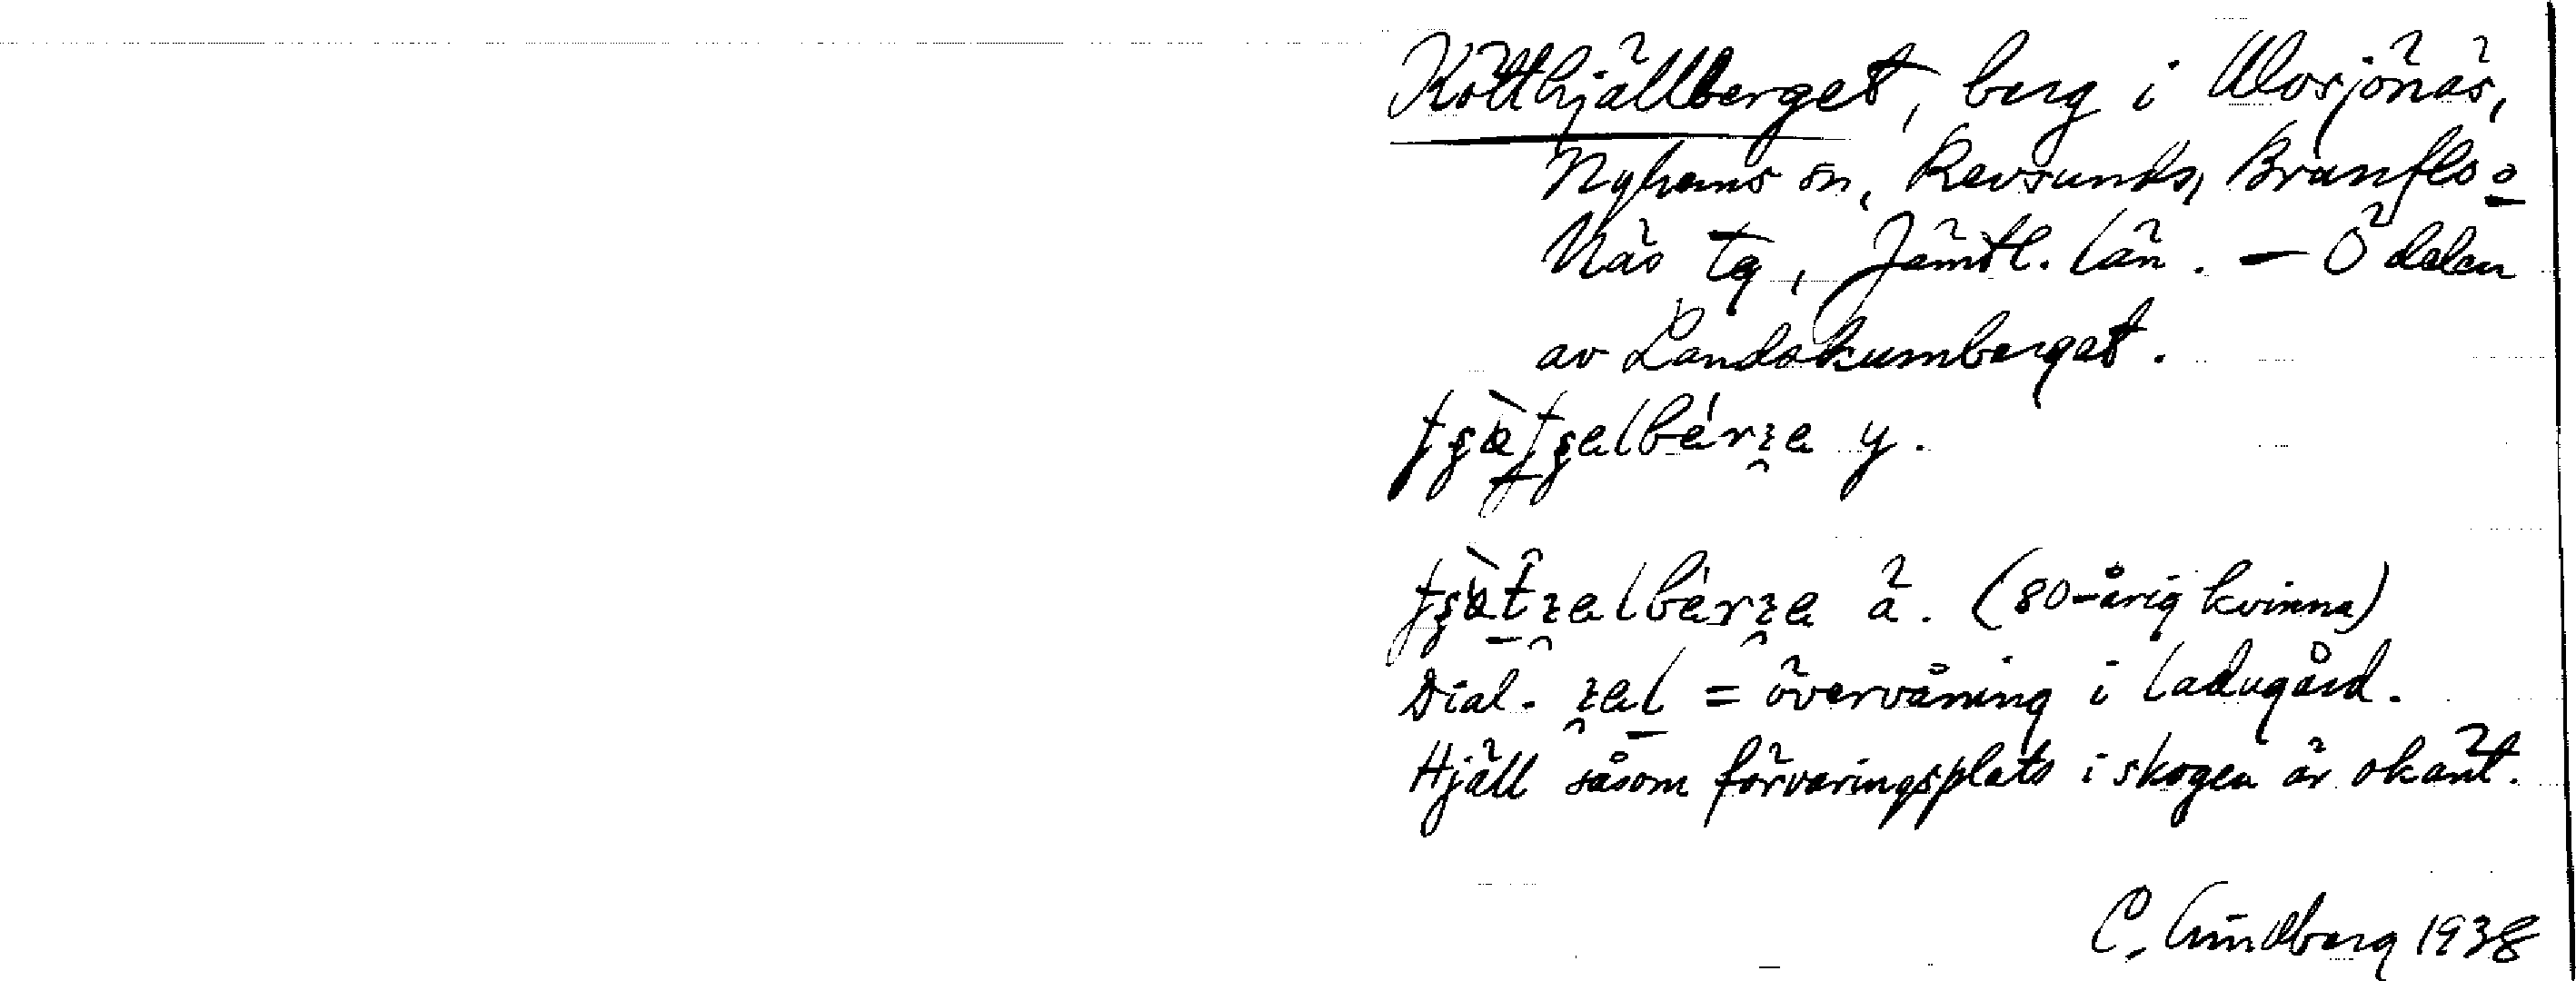 Kötthjällberget, berg i Alosjönäs,
Nyhems sn, Revsunds, Brunflo o
Näs tg, Jämtl. län. – Ö delen
av Landskumberget.
y.
ä. (80-årig kvinna)
Dial. = övervåning i ladugård.
Hjäll såsom förvaringsplats i skogen är okänt.
C. Lindberg 1938